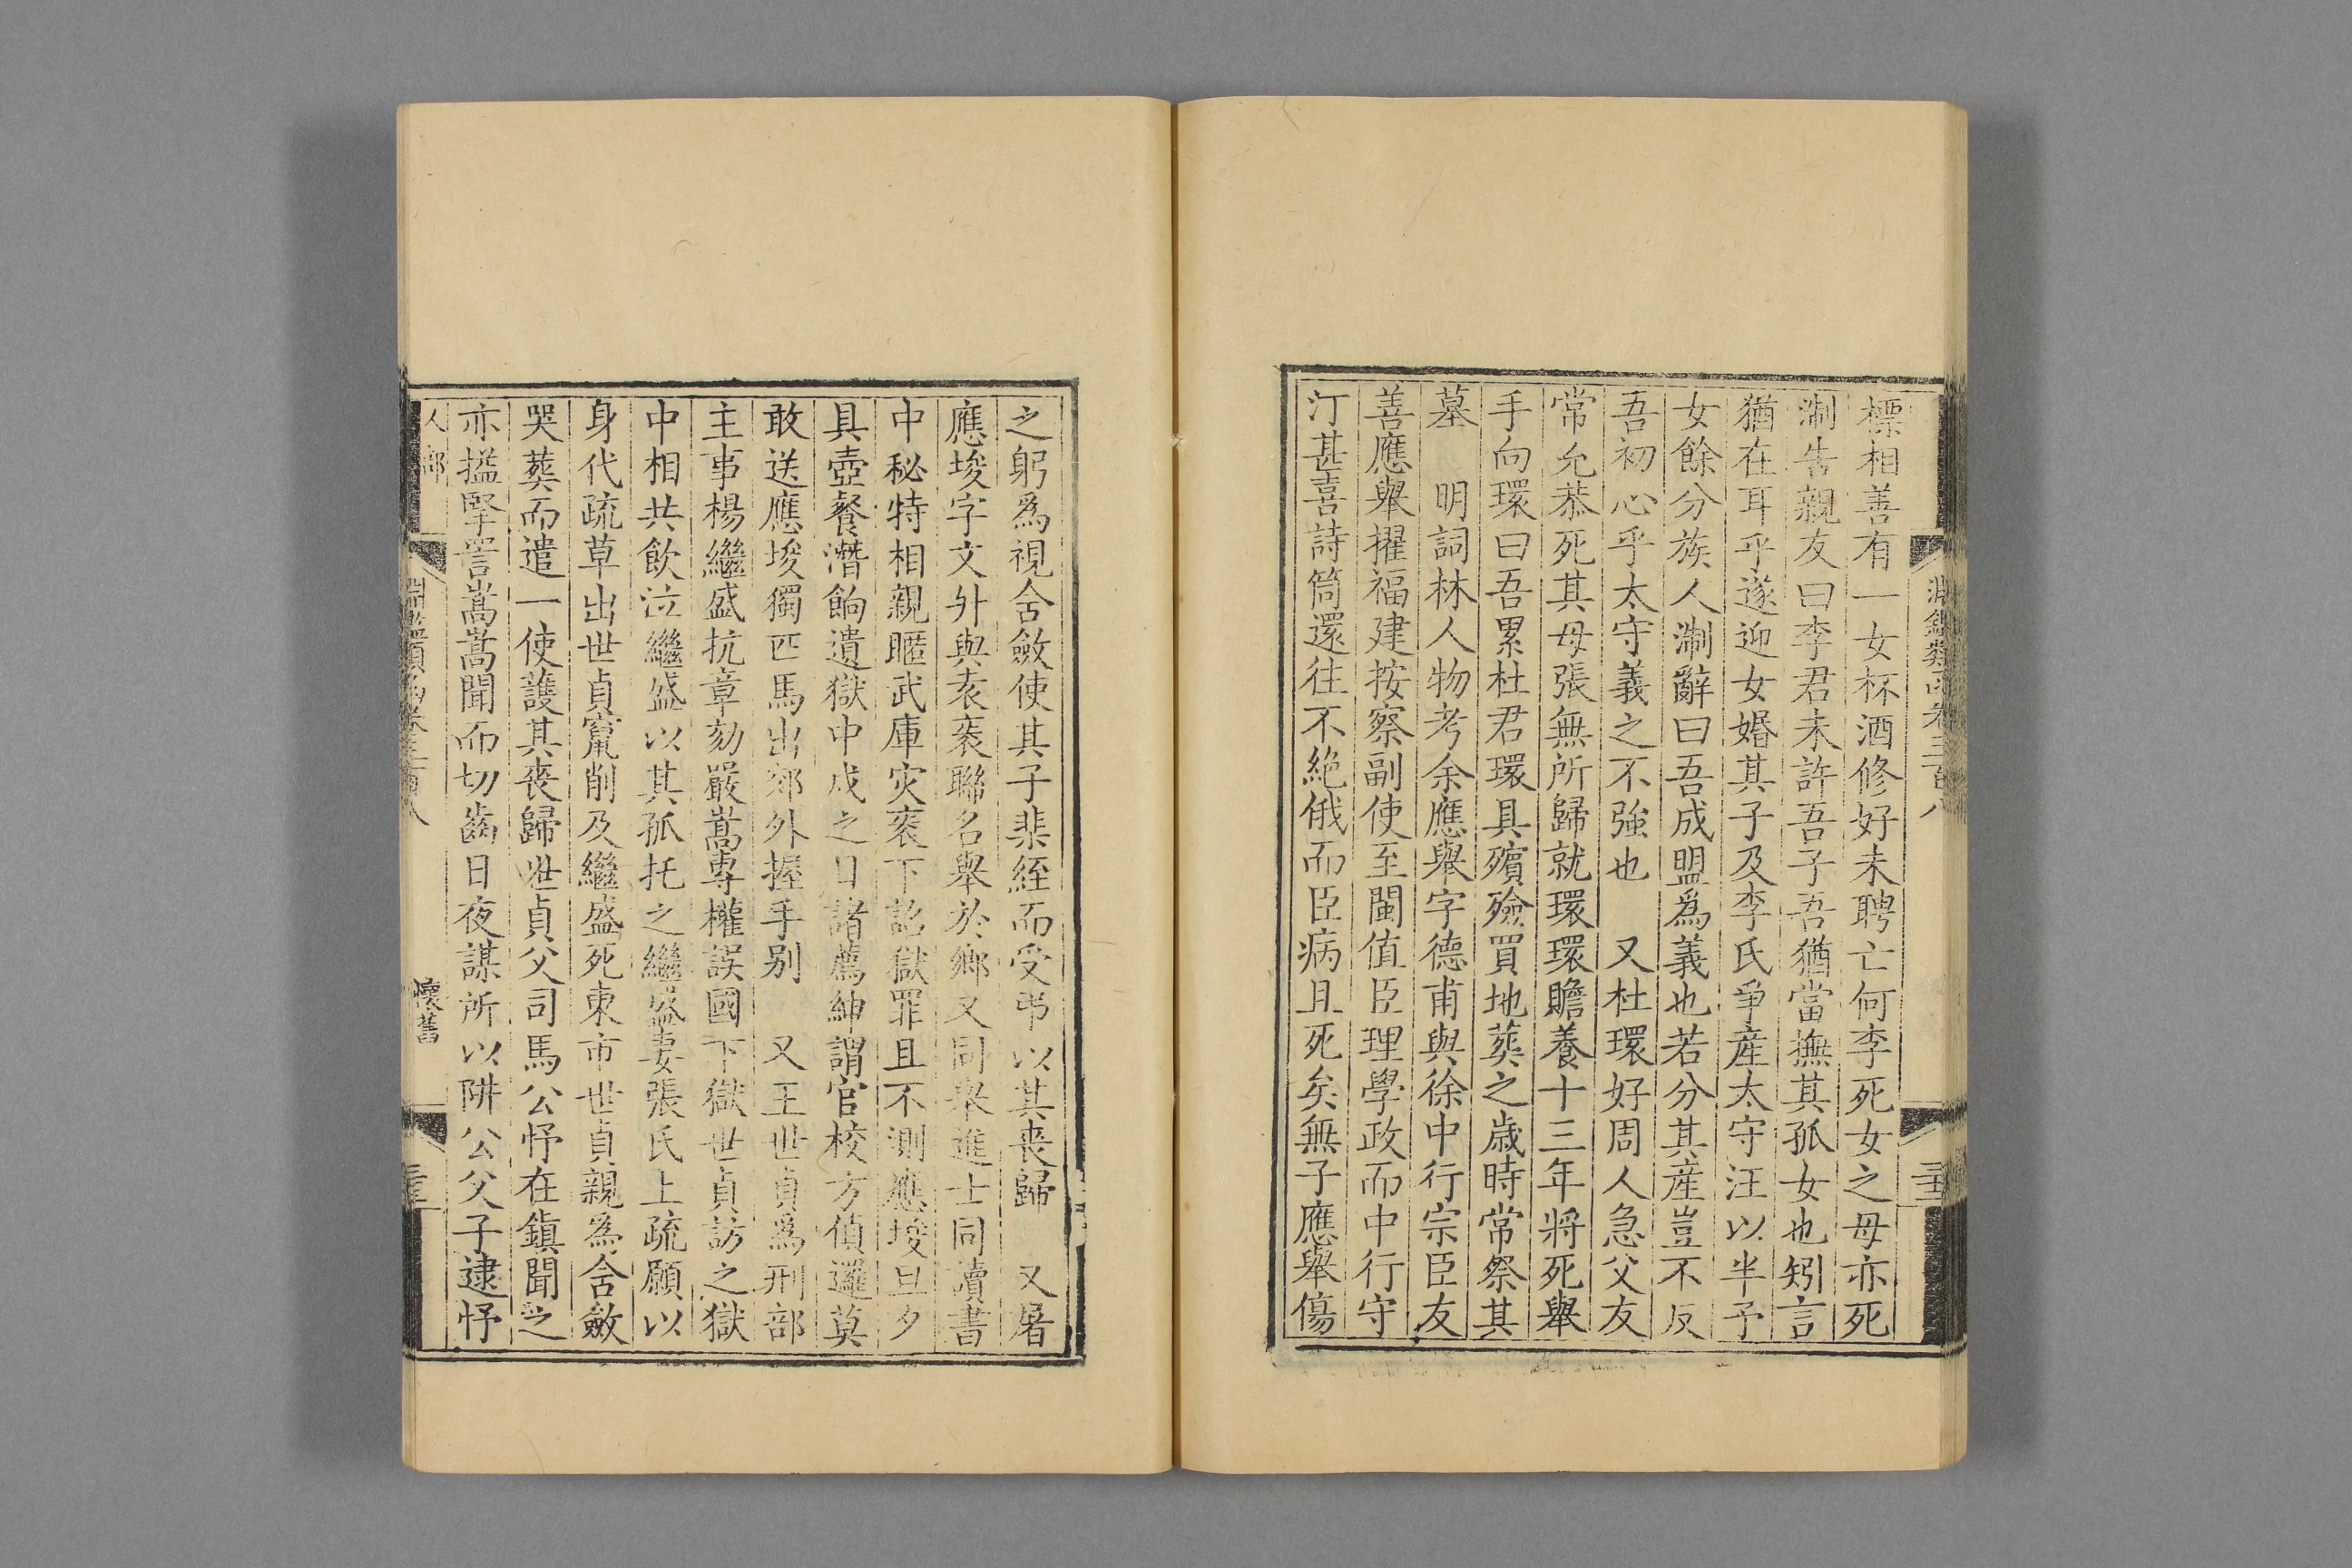 標相善有一女杯酒修好未聘亡何李死女之母亦死
淛告親友曰李君未許吾子吾猶當撫其孤女也矧言
猶在耳乎遂迎女婚其子及李氏爭産太守汪以半予
女餘分族人淛辭曰吾成盟爲義也若分其産豈不反
吾初心乎太守義之不強也　又杜環好周人急父友
常允恭死其母張無所歸就環環贍養十三年將死舉
手向環曰吾累杜君環具殯殮買地葬之歲時常祭其
墓　明詞林人物考余應舉字德甫與徐中行宗臣友
善應舉擢福建按察副使至閩值臣理學政而中行守
汀甚喜詩筒還往不絶俄而臣病且死矣無子應舉傷
之躬爲視含斂使其子縗絰而受弔以其喪歸　又屠
應埈字文升與袁袠聯名舉於鄉又同舉進士同讀書
中秘特相親暱武庫灾袠下詔獄罪且不測應埈旦夕
具壺餐潛餉遺獄中戍之日諸薦紳謂官校方偵邏莫
敢送應埈獨匹馬出郊外握手别　又王世貞爲刑部
主事楊繼盛抗章劾嚴嵩專權誤國下獄世貞訪之獄
中相共飲泣繼盛以其孤托之繼盛妻張氏上疏願以
身代疏草出世貞竄削及繼盛死東市世貞親爲含斂
哭葬而遣一使護其喪歸世貞父司馬公忬在鎮聞之
亦搤掔詈嵩嵩聞而切齒日夜謀所以阱公父子逮忬
人部
淵鑑類函卷三百八
懷舊